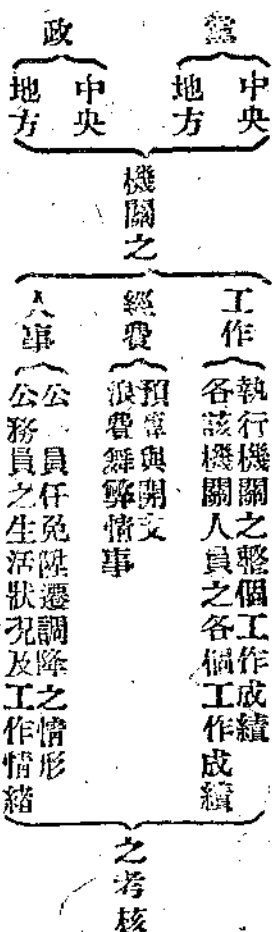 黨
中央
地方
政
中央
地方
機關之
工作
執行機關之整個工作成績
各該機關人員之各個工作成績
經費
預算與開支
浪費舞弊情事
人事
公 員任免陞遷調降之情形
公務員之生活狀况及工作情緒
之考核